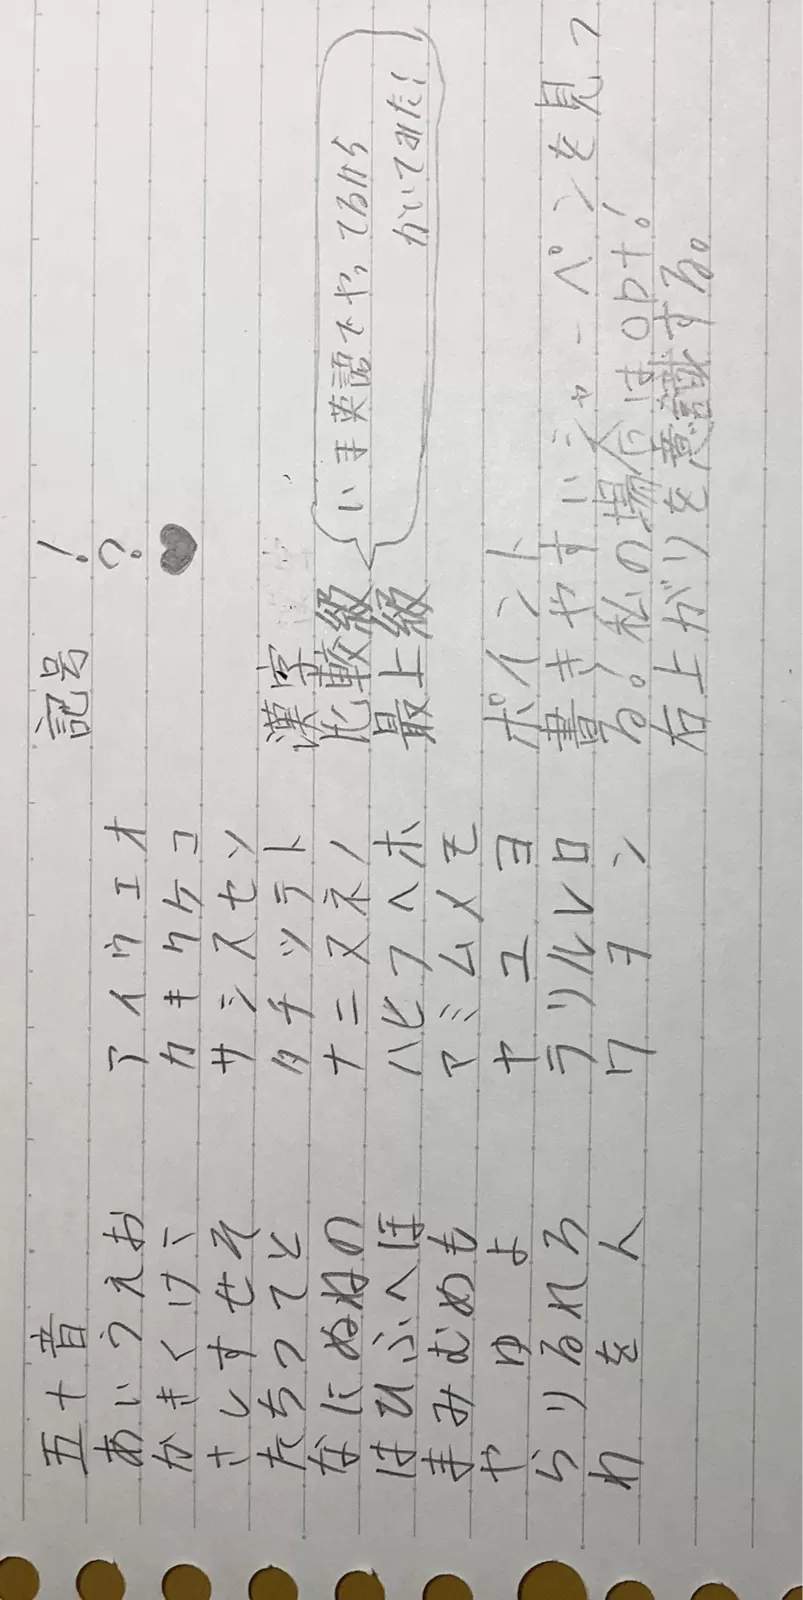 五十音
あいうえお
かきくけこ
さしすせそ
たちつてと
なにぬねの
はひふへほ
まみむめも
や ゆ よ
らりるれろ
わ を ん
アイウエオ
カキクケコ
サシスセソ
タチツテト
ナニヌネノ
ハヒフヘホ
マミムメモ
ヤ ユ ヨ
ラリルレロ
ワ ヲ ン
記号 !
?
♥
漢字
比較級
最上級
いま英語でやってるから
かいてみた!
ポイント
書きやすいシャーペンを見つ
る! 私の場合はopt!
右上がりを意識する。